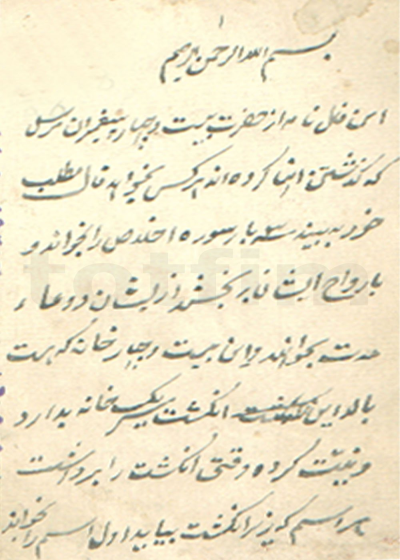 بسم الله الرحمن الرحیم
این فال نامه از حضرت بیست و چهار پیغمبران مرسل
که گذشتن انشا کرده اند هر کس بخواهد فال مطلب
خود به بیند سه بار سوره اخلاص را بخواند و
بارواح ایشانا به بخشد از ایشان دو دعاء
بخواهند و این بیست و چهار خانه که هست
بالای این انگشت بر یک خانه بدارد
و نیت کرده وقتی انگشت را برداشت
هر اسم که زیر انگشت بیاید اول اسم را بخواند
totfim